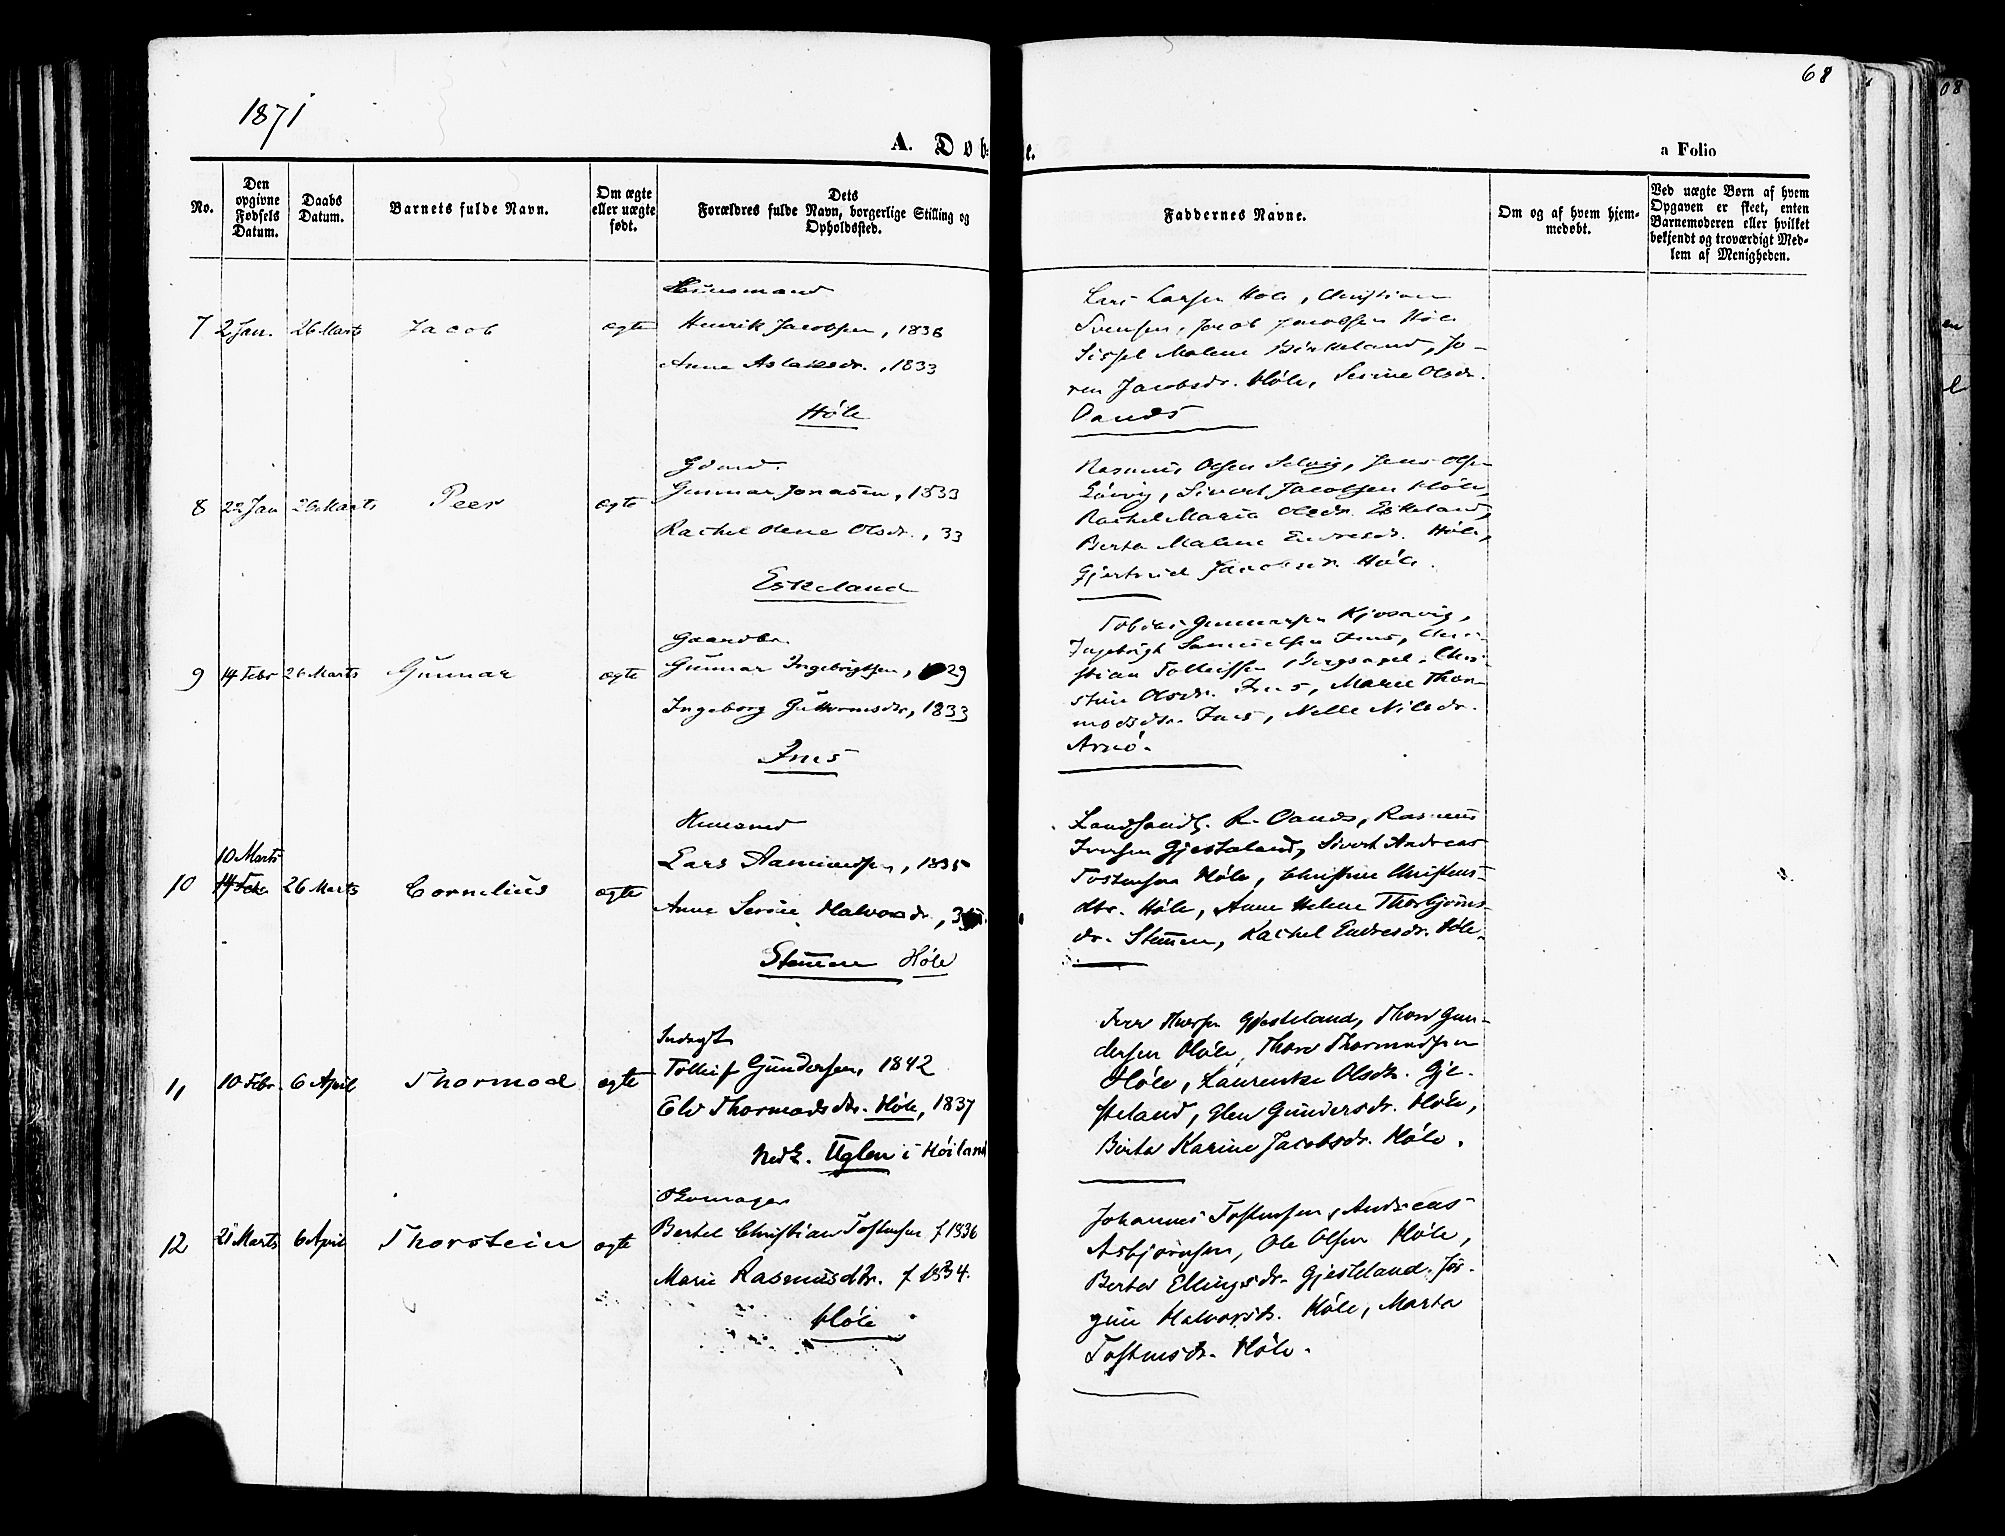 68
1871
A. Døbte.
a Folio
No.
Den opgivne Fødsels Datum.
Daabs Datum.
Barnets fulde Navn.
Om ægte eller uægte født.
Dets Forældres fulde Navn, borgerlige Stilling og Opholdssted.
Faddernes Navne.
Om og af hvem hjemmedøbt.
Ved uægte Born af hvem Opgaven er skeet, enten Barnemoderen eller hvilket bekjendt og troværdigt Medlem af Menigheden.
7 2 Jan. 26 Marts Jacob ægte
Huusmand
Henrik Jacobsen, 1836
Anna Aslaksdr., 1833
Høle
Lars Larsen Høle, Christian
Svensen, Jacob Jacobsen Høle
Sissel Malene Birkeland, Jo-
ren Jacobsdr. Høle, Serine Olsdr.
Oanes
8 22 Jan 26 Marts Peer ægte
Gdmd.
Gunnar Jonasen, 1833
Rachel Olene Olsdr., 33
Eskeland
Rasmus Olsen Selvig, Jens Olsen
Sivert Jacobsen Høle,
Rachel Maria Olsdr. Eskeland,
Berta Malene Endresdr. Høle,
Gjertrud Jacobsdr. Høle.
9 14 Febr 26 Marts Gunnar ægte
Gaardbr.
Gunnar Ingebrigtsen, 1829
Ingeborg Guttormsdr, 1833
Ims
Tobias Gunnarsen Kjosavig,
Ingebrigt Samuelsen Ims, Chri-
stian Tolleifsen Bergsagel, Chri-
stine Olsdr. Ims, Marie Thor-
modsdtr. Ims, Nelle Nilsdr.
Arnø.
10 10 Marts 14 Febr 26 Marts Cornelius ægte
Huusmd
Lars Aamundsen, 1835
Anne Serine Halvorsdr.,
Stemmen Høle
Landhandl. R. Oanes, Rasmus
Iversen Gjesteland, Sivert Andreas
Tostensen Høle, Christine Christens-
dtr. Høle, Anne Helene Thorbjörns-
dr. Stemmen, Rachel Endresdr. Høle.
11 10 Febr. 6 April Thormod ægte
Inderst
Tolleif Gundersen, 1842
Eli Thormodsdtr. Høle, 1837
Nedk. Uglen i Høiland
Iver Iversen Gjesteland, Thore Gun-
dersen Høle, Thore Thormodsen
Høle, Laurentze Olsdtr. Gje-
steland, Elen Gundersdr. Høle,
Berta Karine Jacobsdr. Høle.
12 21 Marts 6 April Thorstein ægte
Skomager
Bertel Christian Tostensen f 1836
Marie Rasmusdtr. f 1834.
Høle
Johannes Tostensen, Andreas
Asbjörnsen, Ole Olsen Høle,
Berta Ellingsdr. Gjesteland. Jør-
gine Halvorsdr. Høle, Marta
Tostensdr. Høle.